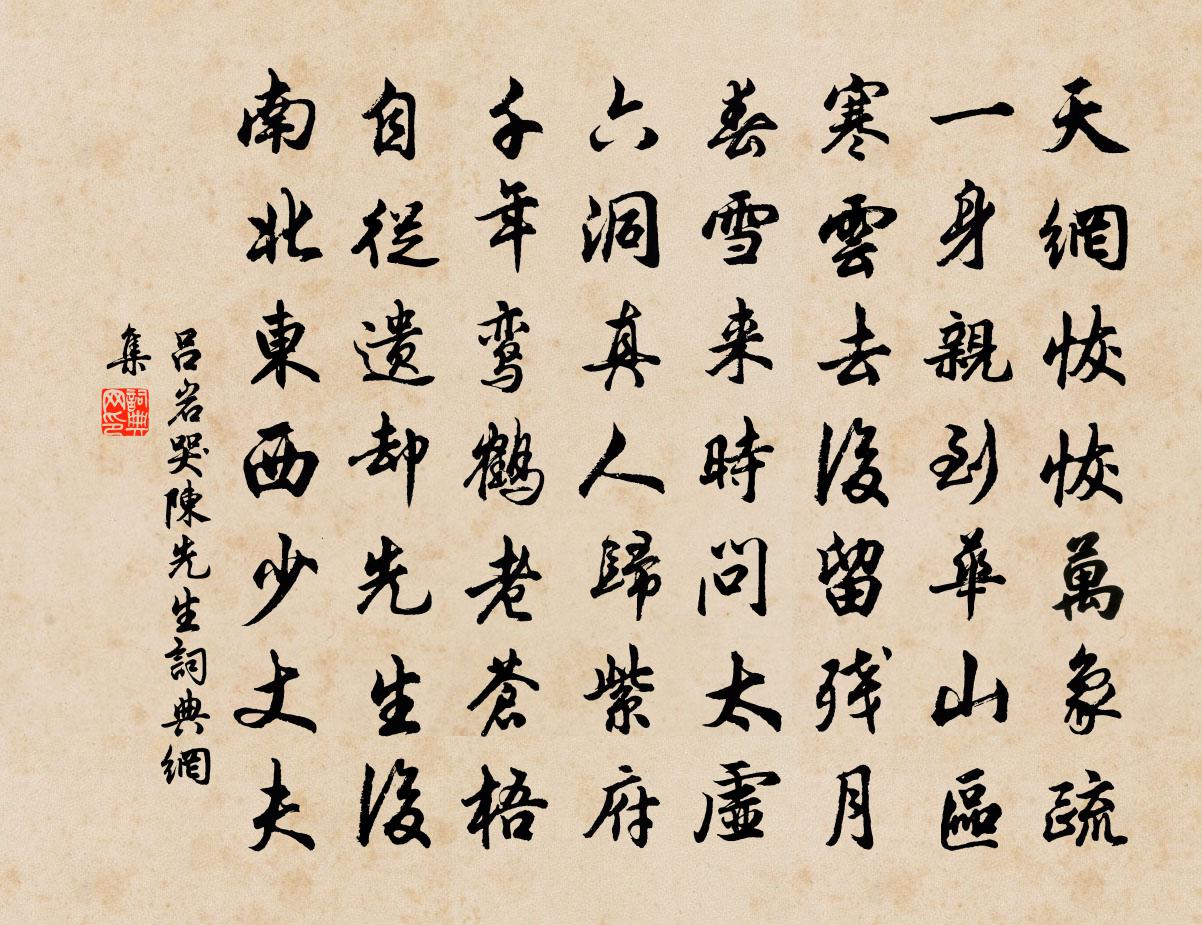 天網恢恢萬象疏
一身親到華山區
寒雲去後留残月
春雪来時問太虛
六洞真人歸紫府
千年鸾鶴老蒼梧
自從遺却先生後
南北東西少丈夫
吕岩哭陳先生詞典網
集
詞典网印